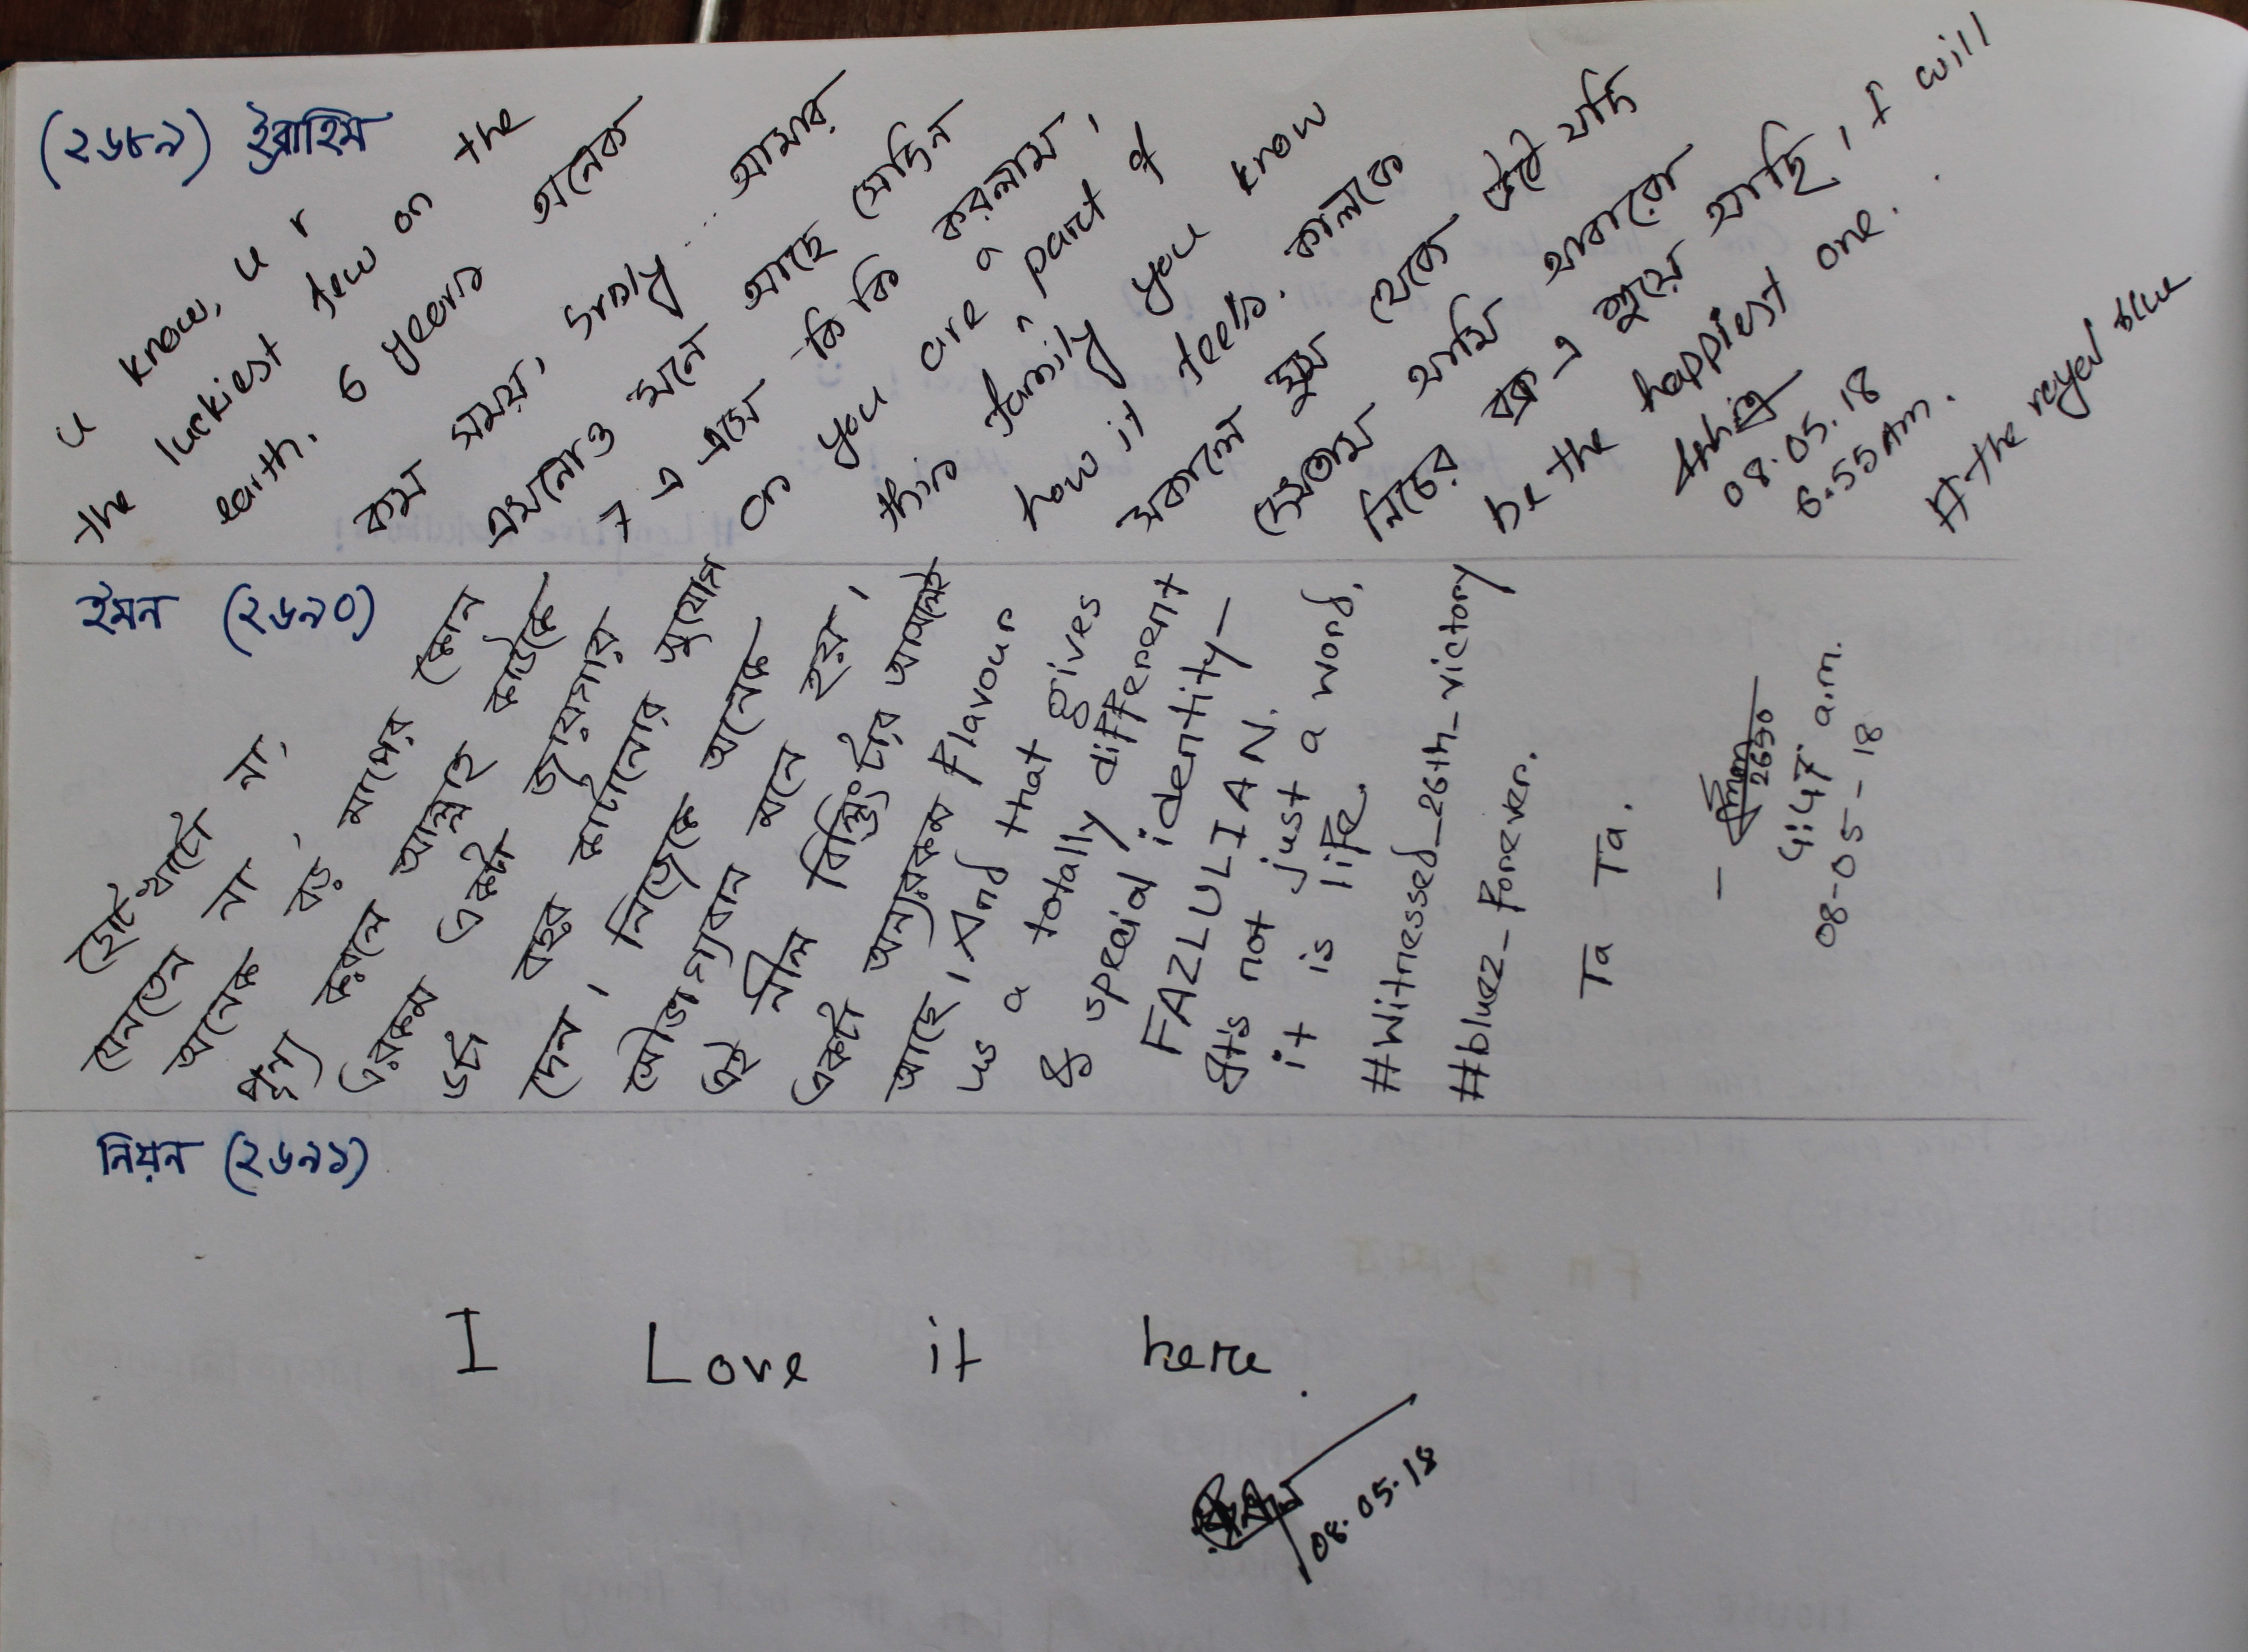 (২৬৮৯) ইব্রাহিম
u know, u r
the luckiest few on the
earth. 6 years অনেক
কম সময়, srsly ... আমার
এখনোও মনে আছে যেদিন
7 এ এসে কি কি করলাম,
on you are a part of
this family you know
how it feels. কালকে
সকালে ঘুম থেকে উঠে যদি
দেখতাম আমি আবারো
নিচের ব্লক এ শুয়ে আছি, I will
be the happiest one.
08.05.18
6.55 AM.
#the royal blue
ইমন (২৬৯০)
ছোট খাটো না,
যেনতেন না,
অনেক বড় মাপের কোন
পূণ্য করলে আল্লাহ কাউকে
এরকম একটা জায়গায়
৬টা বছর কাটানোর সুযোগ
দেন। নিজেকে অনেক
সৌভাগ্যবান মনে হয়।
এই নীল বিল্ডিংটার আসলেই
একটা অন্যরকম Flavour
আছে। And that gives
us a totally different
& special identity—
FAZLULIAN.
Its not just a word,
it is life.
#Witnessed_26th_victory
#bluez_Forever.
Ta Ta.
- Emon
2690
4:47 a.m.
08-05-18
নিয়ন (২৬৯১)
I Love it here.
08.05.18